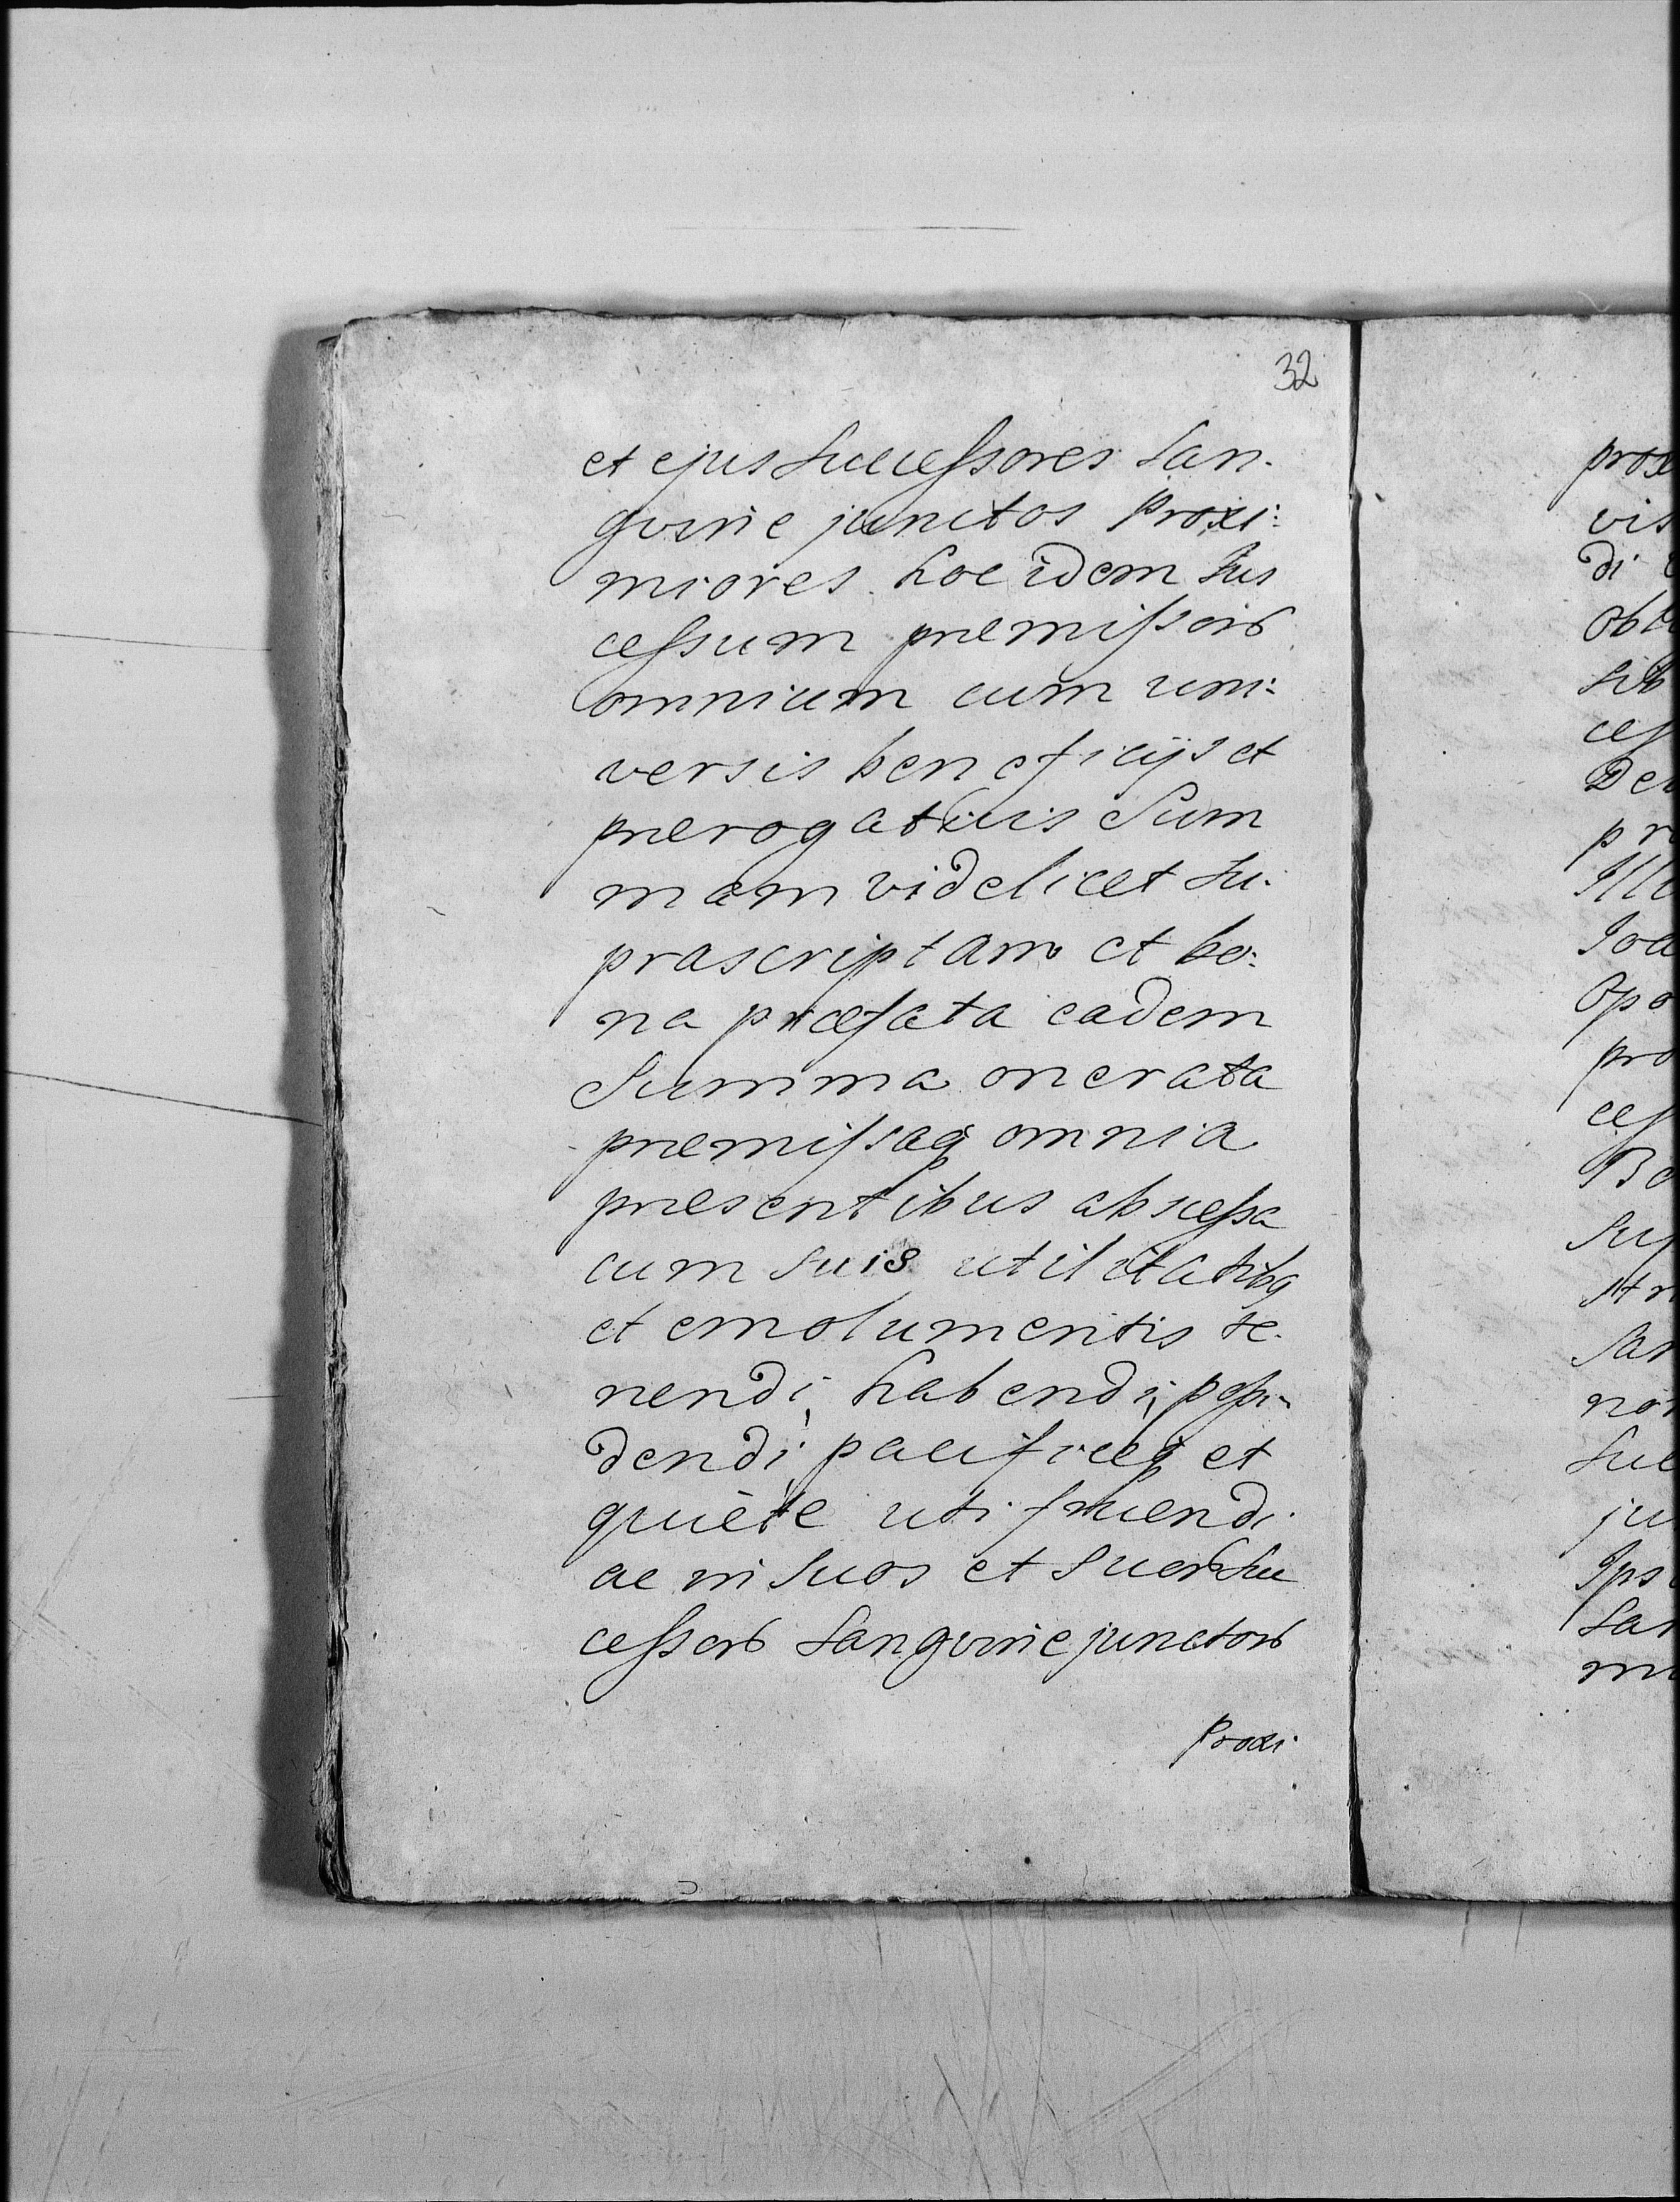 32
et ejus Successores San-
gvine junctos Proxi:
miores hoc idem Jus
cessum premissorb
omnium cum uni:
versis beneficijs et
prerogativis Sum
mam videlicet su-
prascriptam et bo:
na præfata eadem
Summa onerata
premissaq omnia
presentibus abscessa
cum suis utilitatibq
et emolumentis te-
nendi, habendi, possi-
dendi, pacificeq et
quiete uti fruendi
ac in suos et suorb suc
cessorb Sangvine junctorb
Proxi
prox
vis
di
obt
sib
ces
Det
pr
Illu
Joa
Opo
pro
ces
Bo
Su
str
San
no
Suc
ju
Ips
San
mi